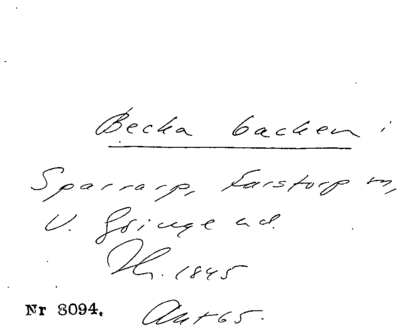 Becka backen i
Sparrarp, Farstorp sn,
V. Göinge hd.
Hr. 1845
Nr 8094. Akt 65.